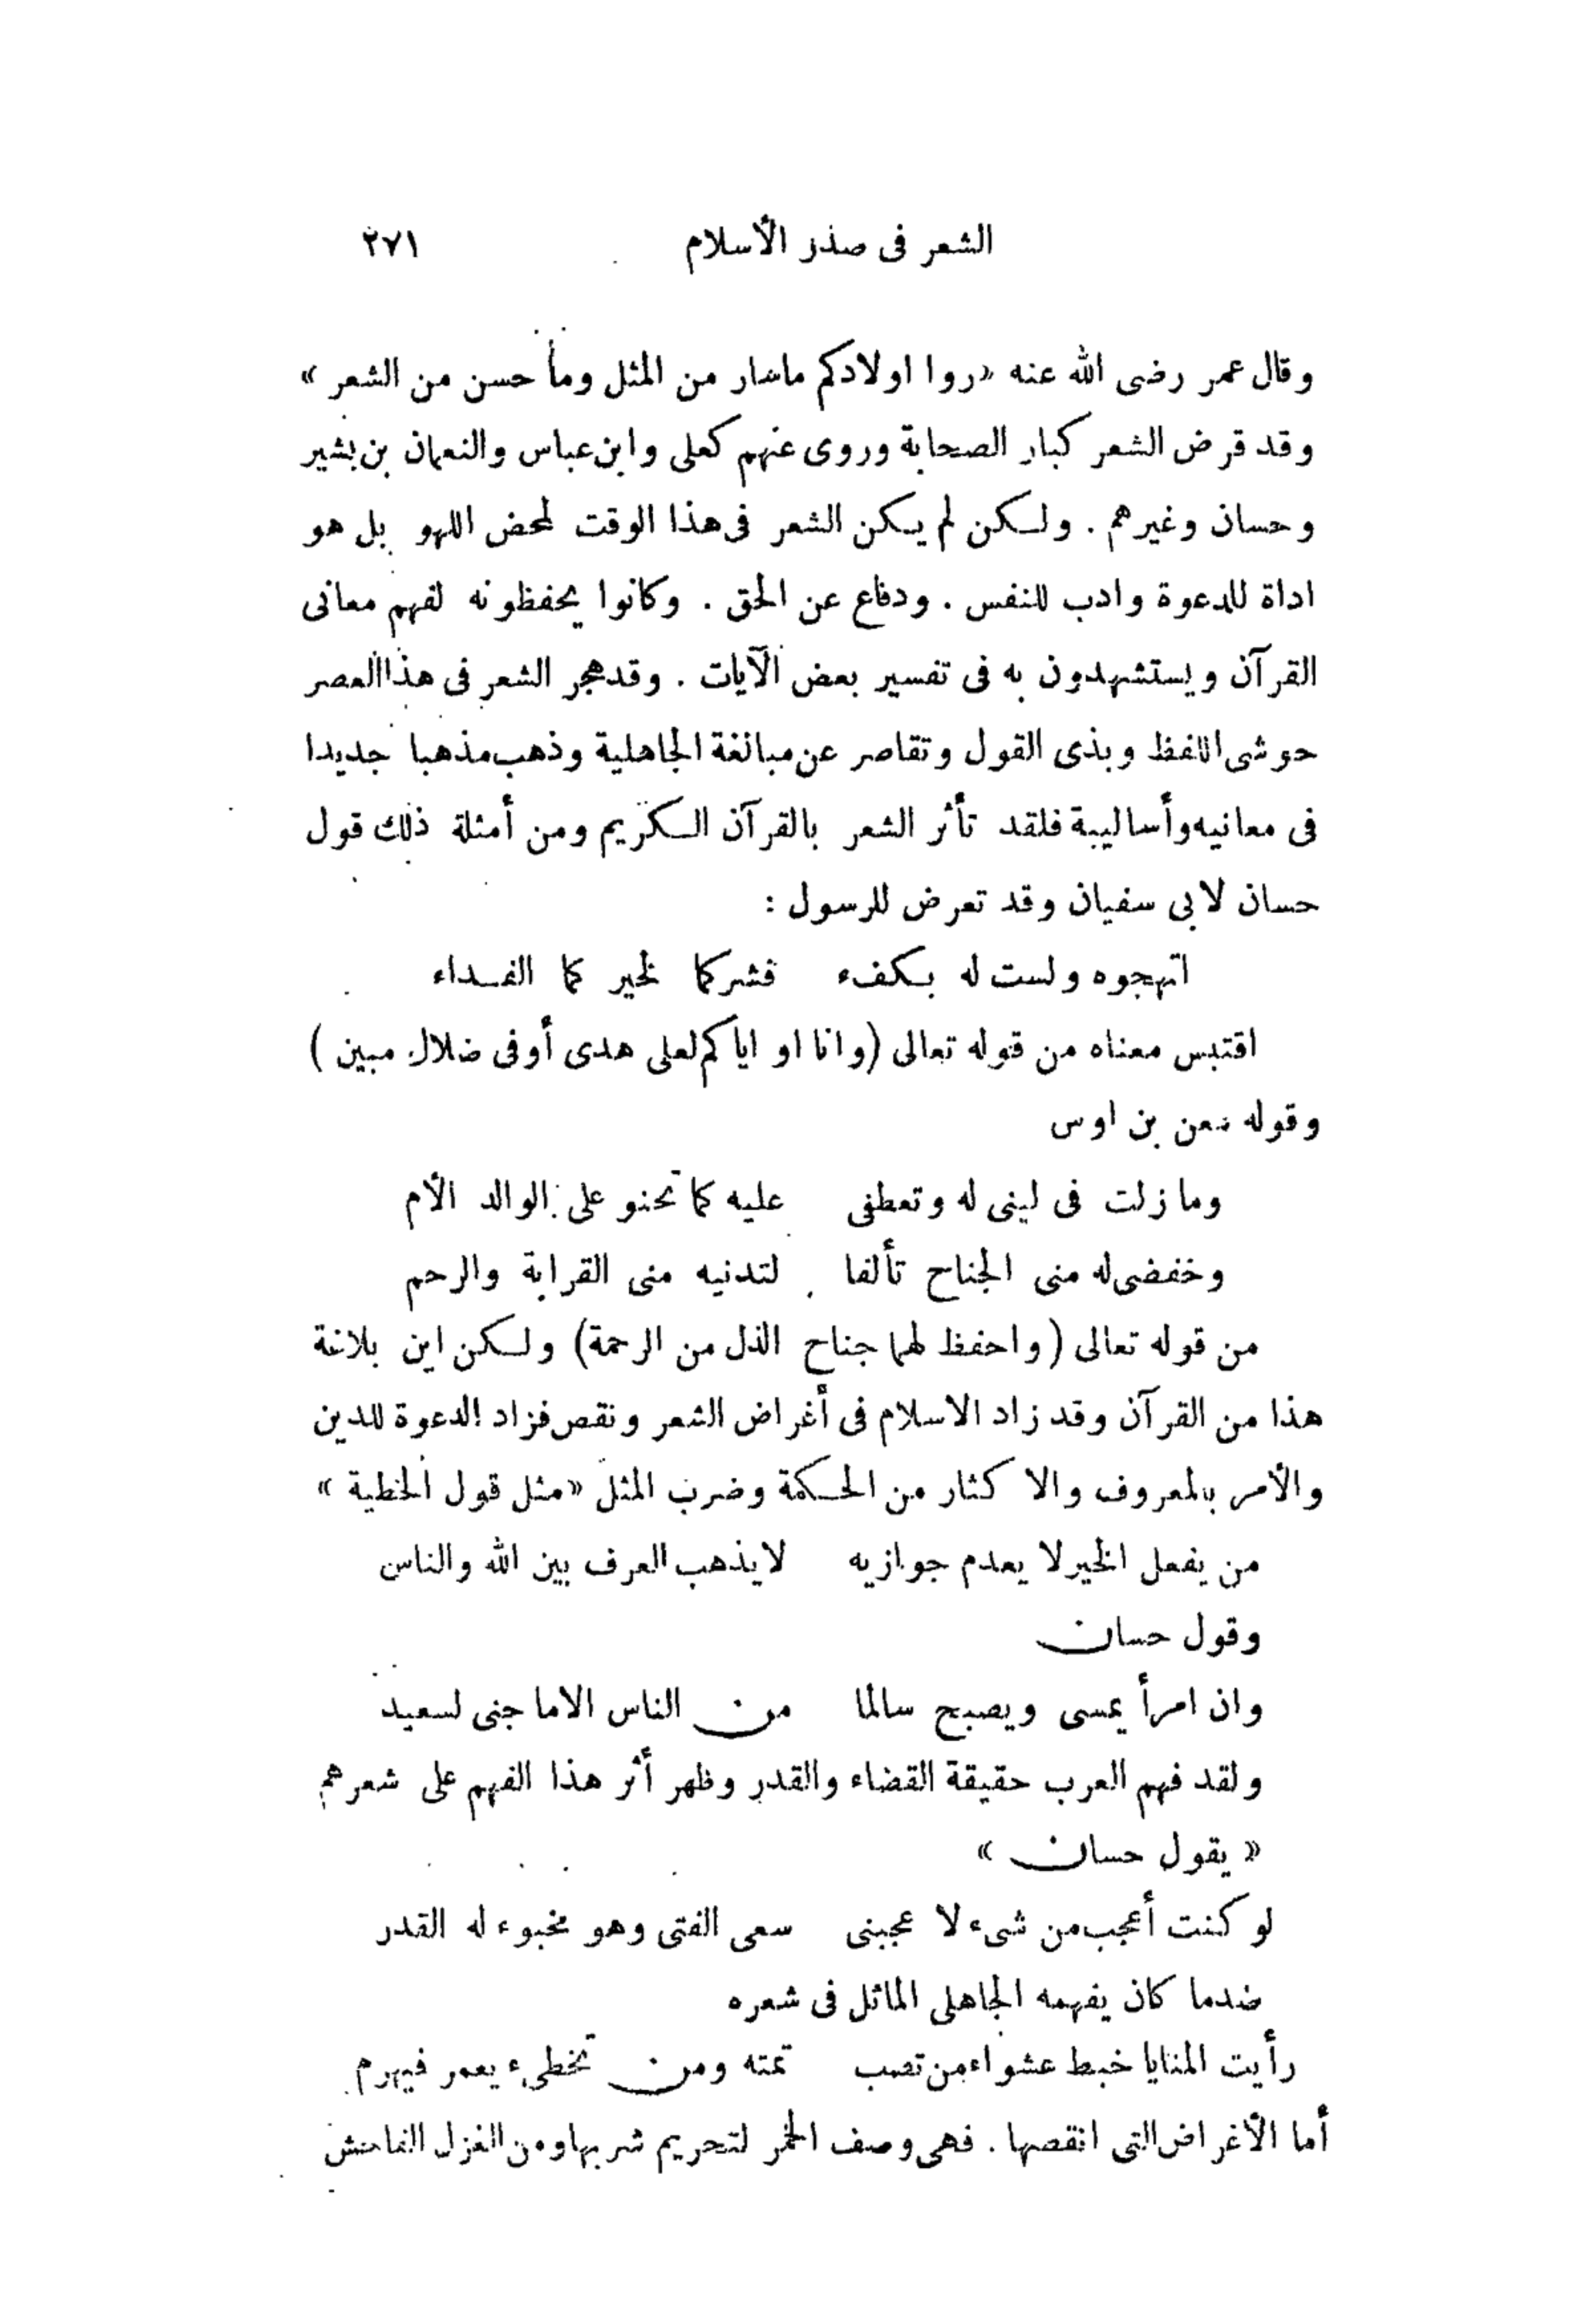 الشعر فى صدر الأسلام ٢٧١
وقال عمر رضى الله عنه «روا اولادكم ماسار من المثل وما حسن من الشعر»
وقد قرض الشعر كبار الصحابة وروى عنهم كعلى وابن عباس والنعمان بن بشير
وحسان وغيرهم . ولكن لم يكن الشعر فى هذا الوقت لمحض اللهو بل هو
اداة للدعوة وادب للنفس . ودفاع عن الحق . وكانوا يحفظونه لفهم معانى
القرآن ويستشهدون به فى تفسير بعض الآيات . وقد هجر الشعر فى هذا العصر
حوشى اللفظ وبذى القول وتقاصر عن مبالغة الجاهلية وذهب مذهبا جديدا
فى معانيه وأساليبة فلقد تأثر الشعر بالقرآن الكريم ومن أمثلة ذلك قول
حسان لابى سفيان وقد تعرض للرسول :
اتهجوه ولست له بكفء فشركما لخيركما الفداء
اقتبس معناه من قوله تعالى (وانا او اياكم لعلى هدى أوفى ضلال مبين )
وقوله معن بن اوس
وما زلت فى لينى له وتعطفى عليه كما تحنو على الوالد الأم
وخفضى له منى الجناح تألفا لتدنيه منى القرابة والرحم
من قوله تعالى (واحفظ لهما جناح الذل من الرحمة) ولكن اين بلاغة
هذا من القرآن وقد زاد الاسلام فى أغراض الشعر ونقص فزاد الدعوة للدين
والأمر بالمعروف والاكثار من الحكمة وضرب المثل «مثل قول الخطية»
من يفعل الخير لا يعدم جوازيه لا يذهب العرف بين الله والناس
وقول حسان
وان امرأ يمسى ويصبح سالما من الناس الا ما جنى لسعيد
ولقد فهم العرب حقيقة القضاء والقدر وظهر أثر هذا الفهم على شعرهم
« يقول حسان »
لو كنت أعجب من شىء لا عجبنى سعى الفتى وهو مخبوء له القدر
ضدما كان يفهمه الجاهلى الماثل فى شعره
رأيت المنايا خبط عشواء من تصب تمته ومن تخطىء يعمر فيهرم
أما الأغراض التى انقصها . فهى وصف الخمر لتحريم شربها ومن الغزل الفاحش